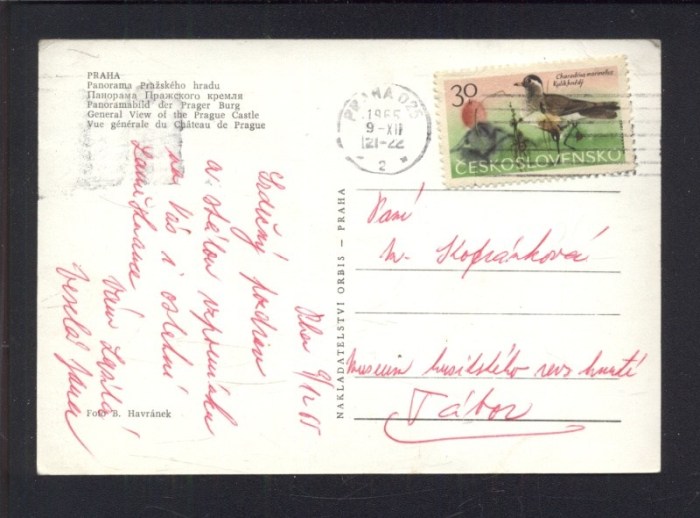 PRAHA
Panorama Pražského hradu
Панорама Пражского кремля
Panoramabild der Prager Burg
General View of the Prague Castle
Vue générale du Château de Prague
PRAHA 025
1965
9-XII
21-22
2
30
Charadrius morinellus
Kulík hnědý
ČESKOSLOVENSKO
9/12 65
Srdečný pozdrav
a stálou vzpomínku
na Vás i ostatní
zaměstnance
Vám zasílá
Veselá Jana
Foto B. Havránek
NAKLADATELSTVÍ ORBIS — PRAHA
Paní
Museum husitského rev. hnutí
Tábor